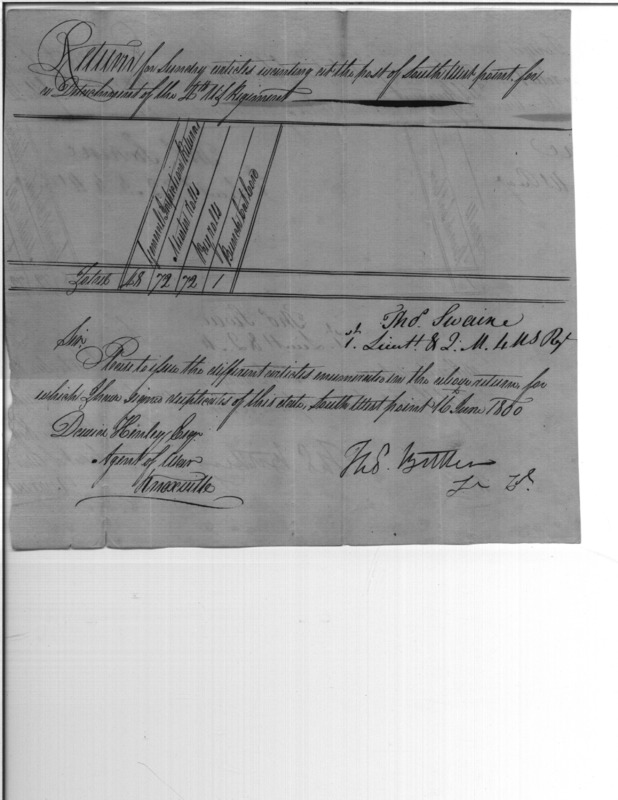 Return for Sundry articles wanting at the post of South West point, for
a Detachment of the 4th U.S. Regiment
General & Inspection Returns
Muster rolls
Pay rolls
Total 48 72 72 1
Thos. Swaine
1st. Lieut. & Q. M. 4 US Rgt
Sir,
Please to issue the different articles enumerated in the above return for
which I have signed duplicates of this date, South West point 16th June 1800
David Henley Esqr
Agent of War
Knoxville
Thos. Butler